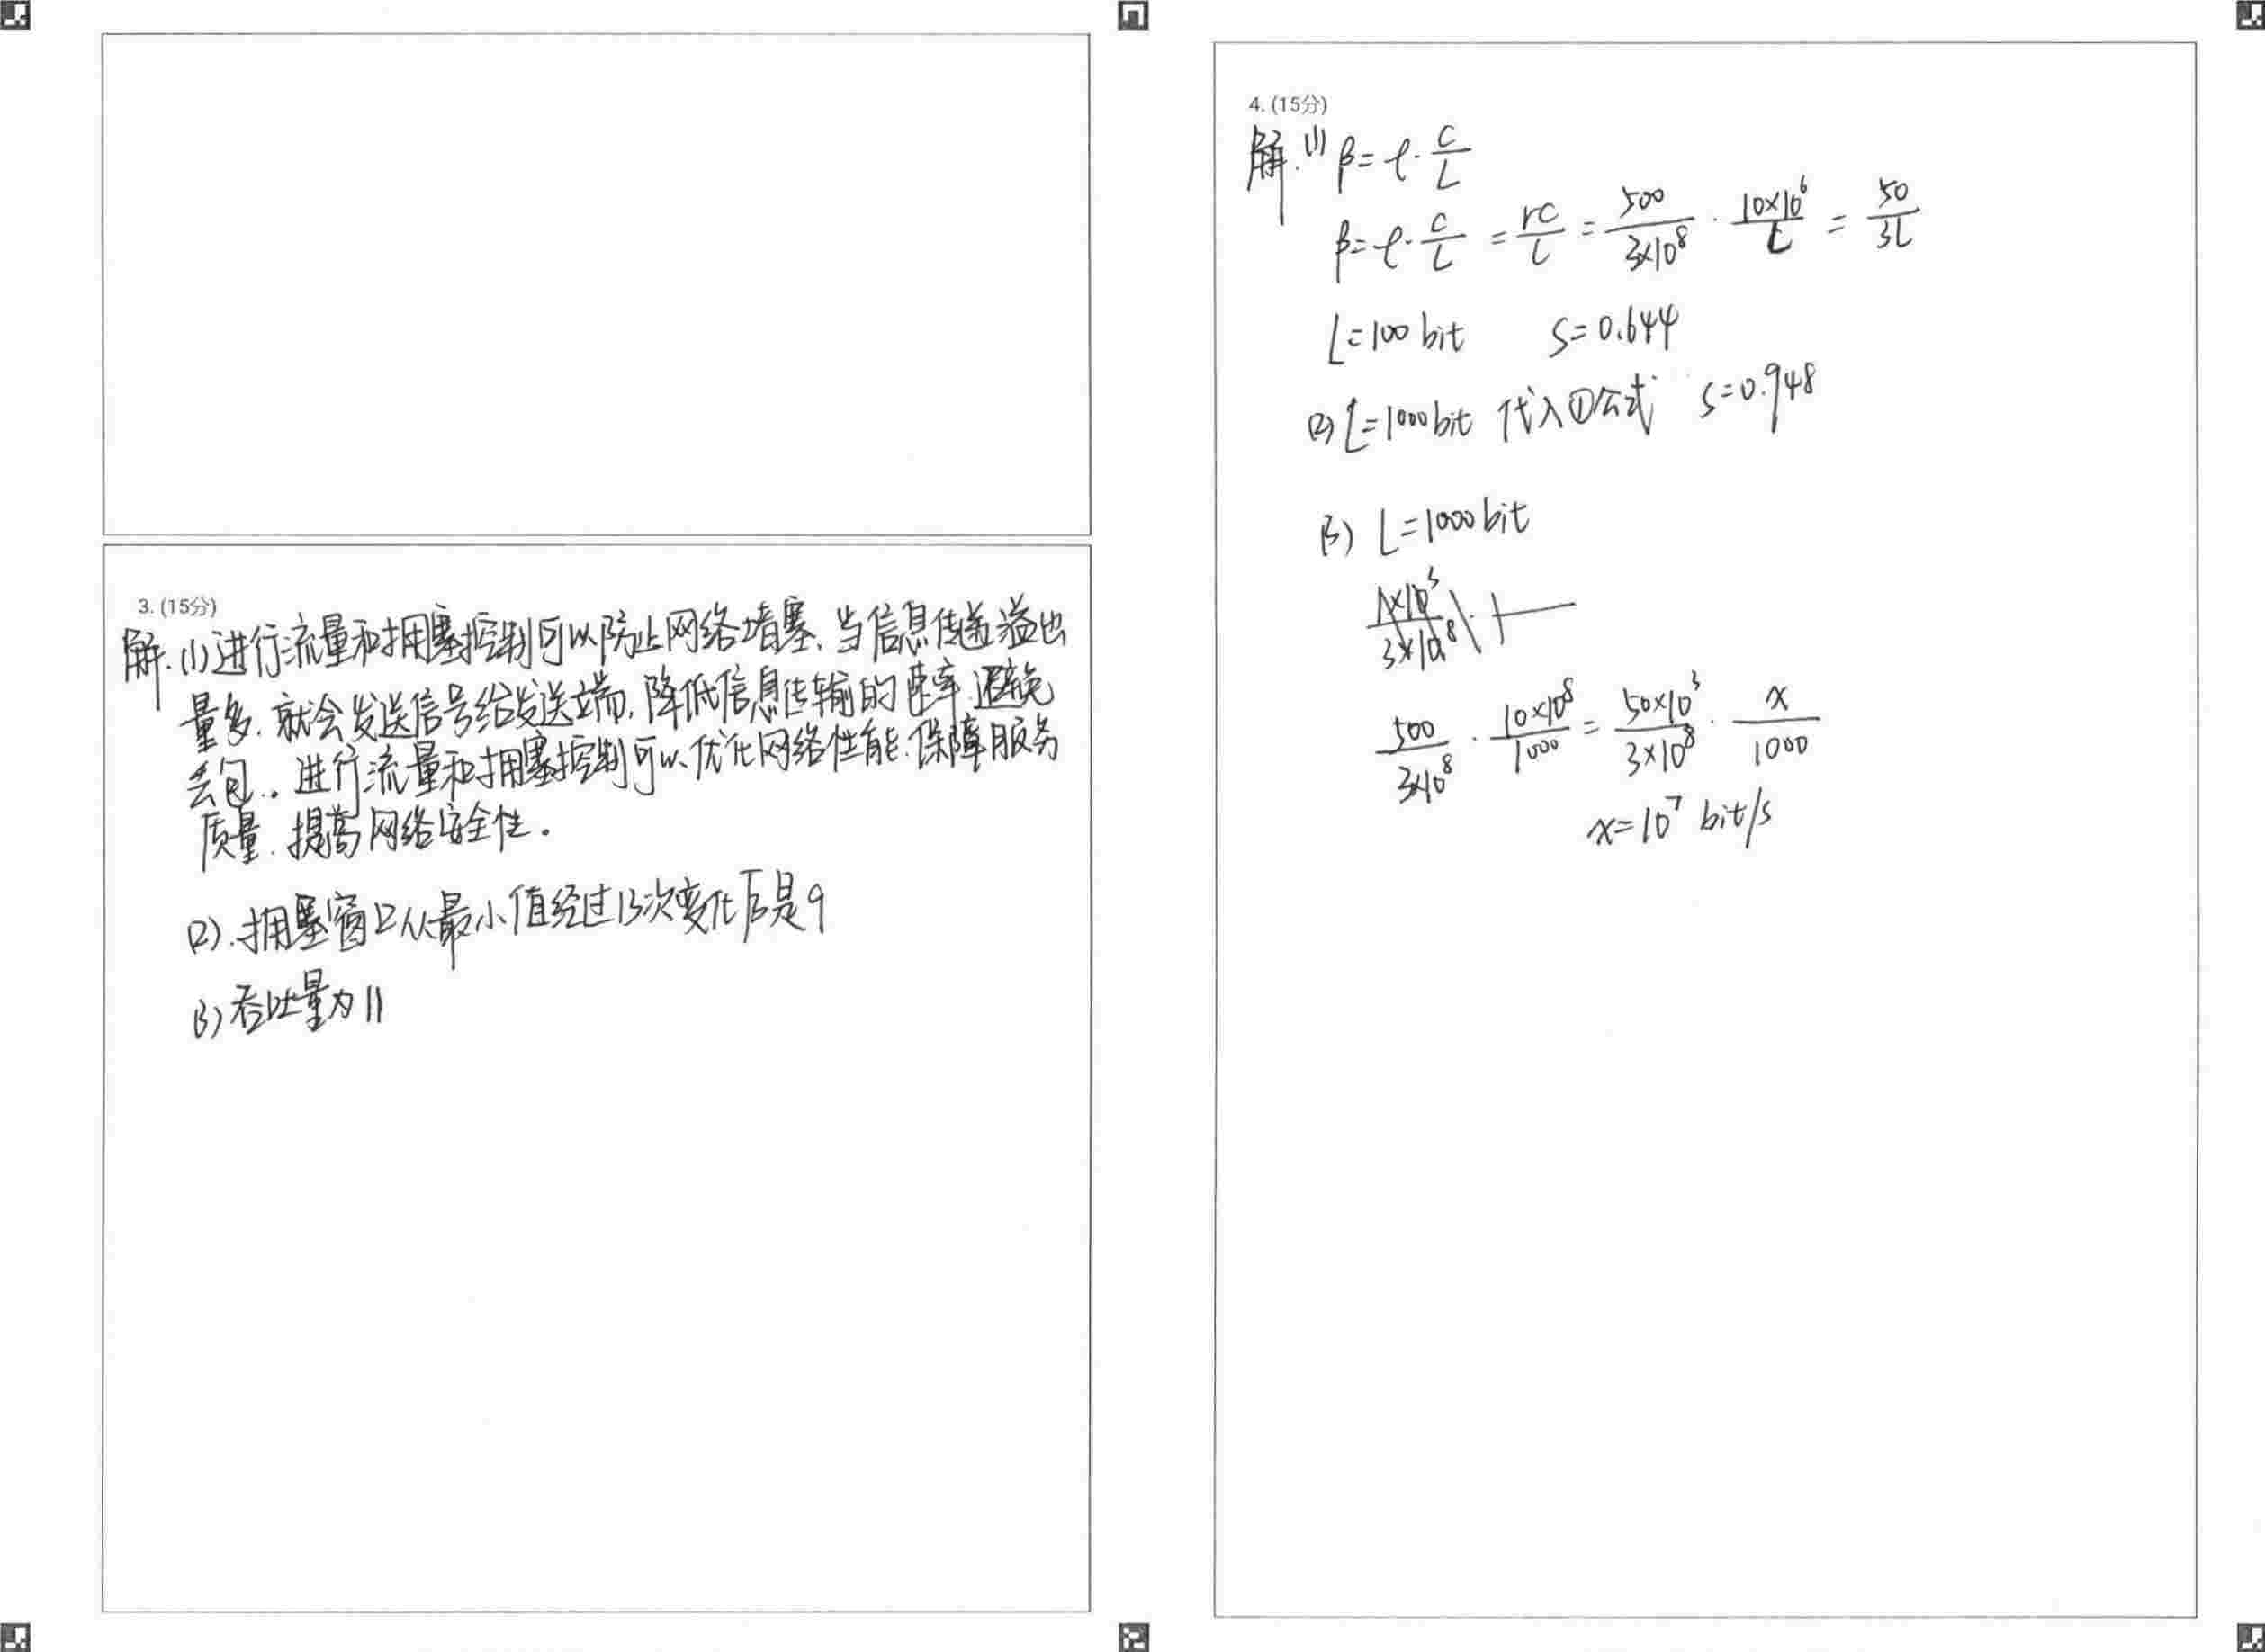 3. (15分)
解. (1) 进行流量和拥塞控制可以防止网络堵塞. 当信息传递溢出
量多. 就会发送信号给发送端, 降低信息传输的速率 避免
丢包.。进行流量和拥塞控制可以优化网络性能. 保障服务
质量. 提高网络安全性。
(2). 拥塞窗口从最小值经过13次变化后是9
(3) 吞吐量为11
4. (15分)
解. (1) β = τ · C/L
β = τ · C/L = τC/L = 500/(3×10^8) · 10×10^6/L = 50/3L
L = 100 bit S = 0.644
(2) L = 1000 bit 代入①公式 S = 0.948
(3) L = 1000 bit
500/(3×10^8) · 10×10^8/1000 = 50×10^3/(3×10^8) · x/1000
x = 10^7 bit/s